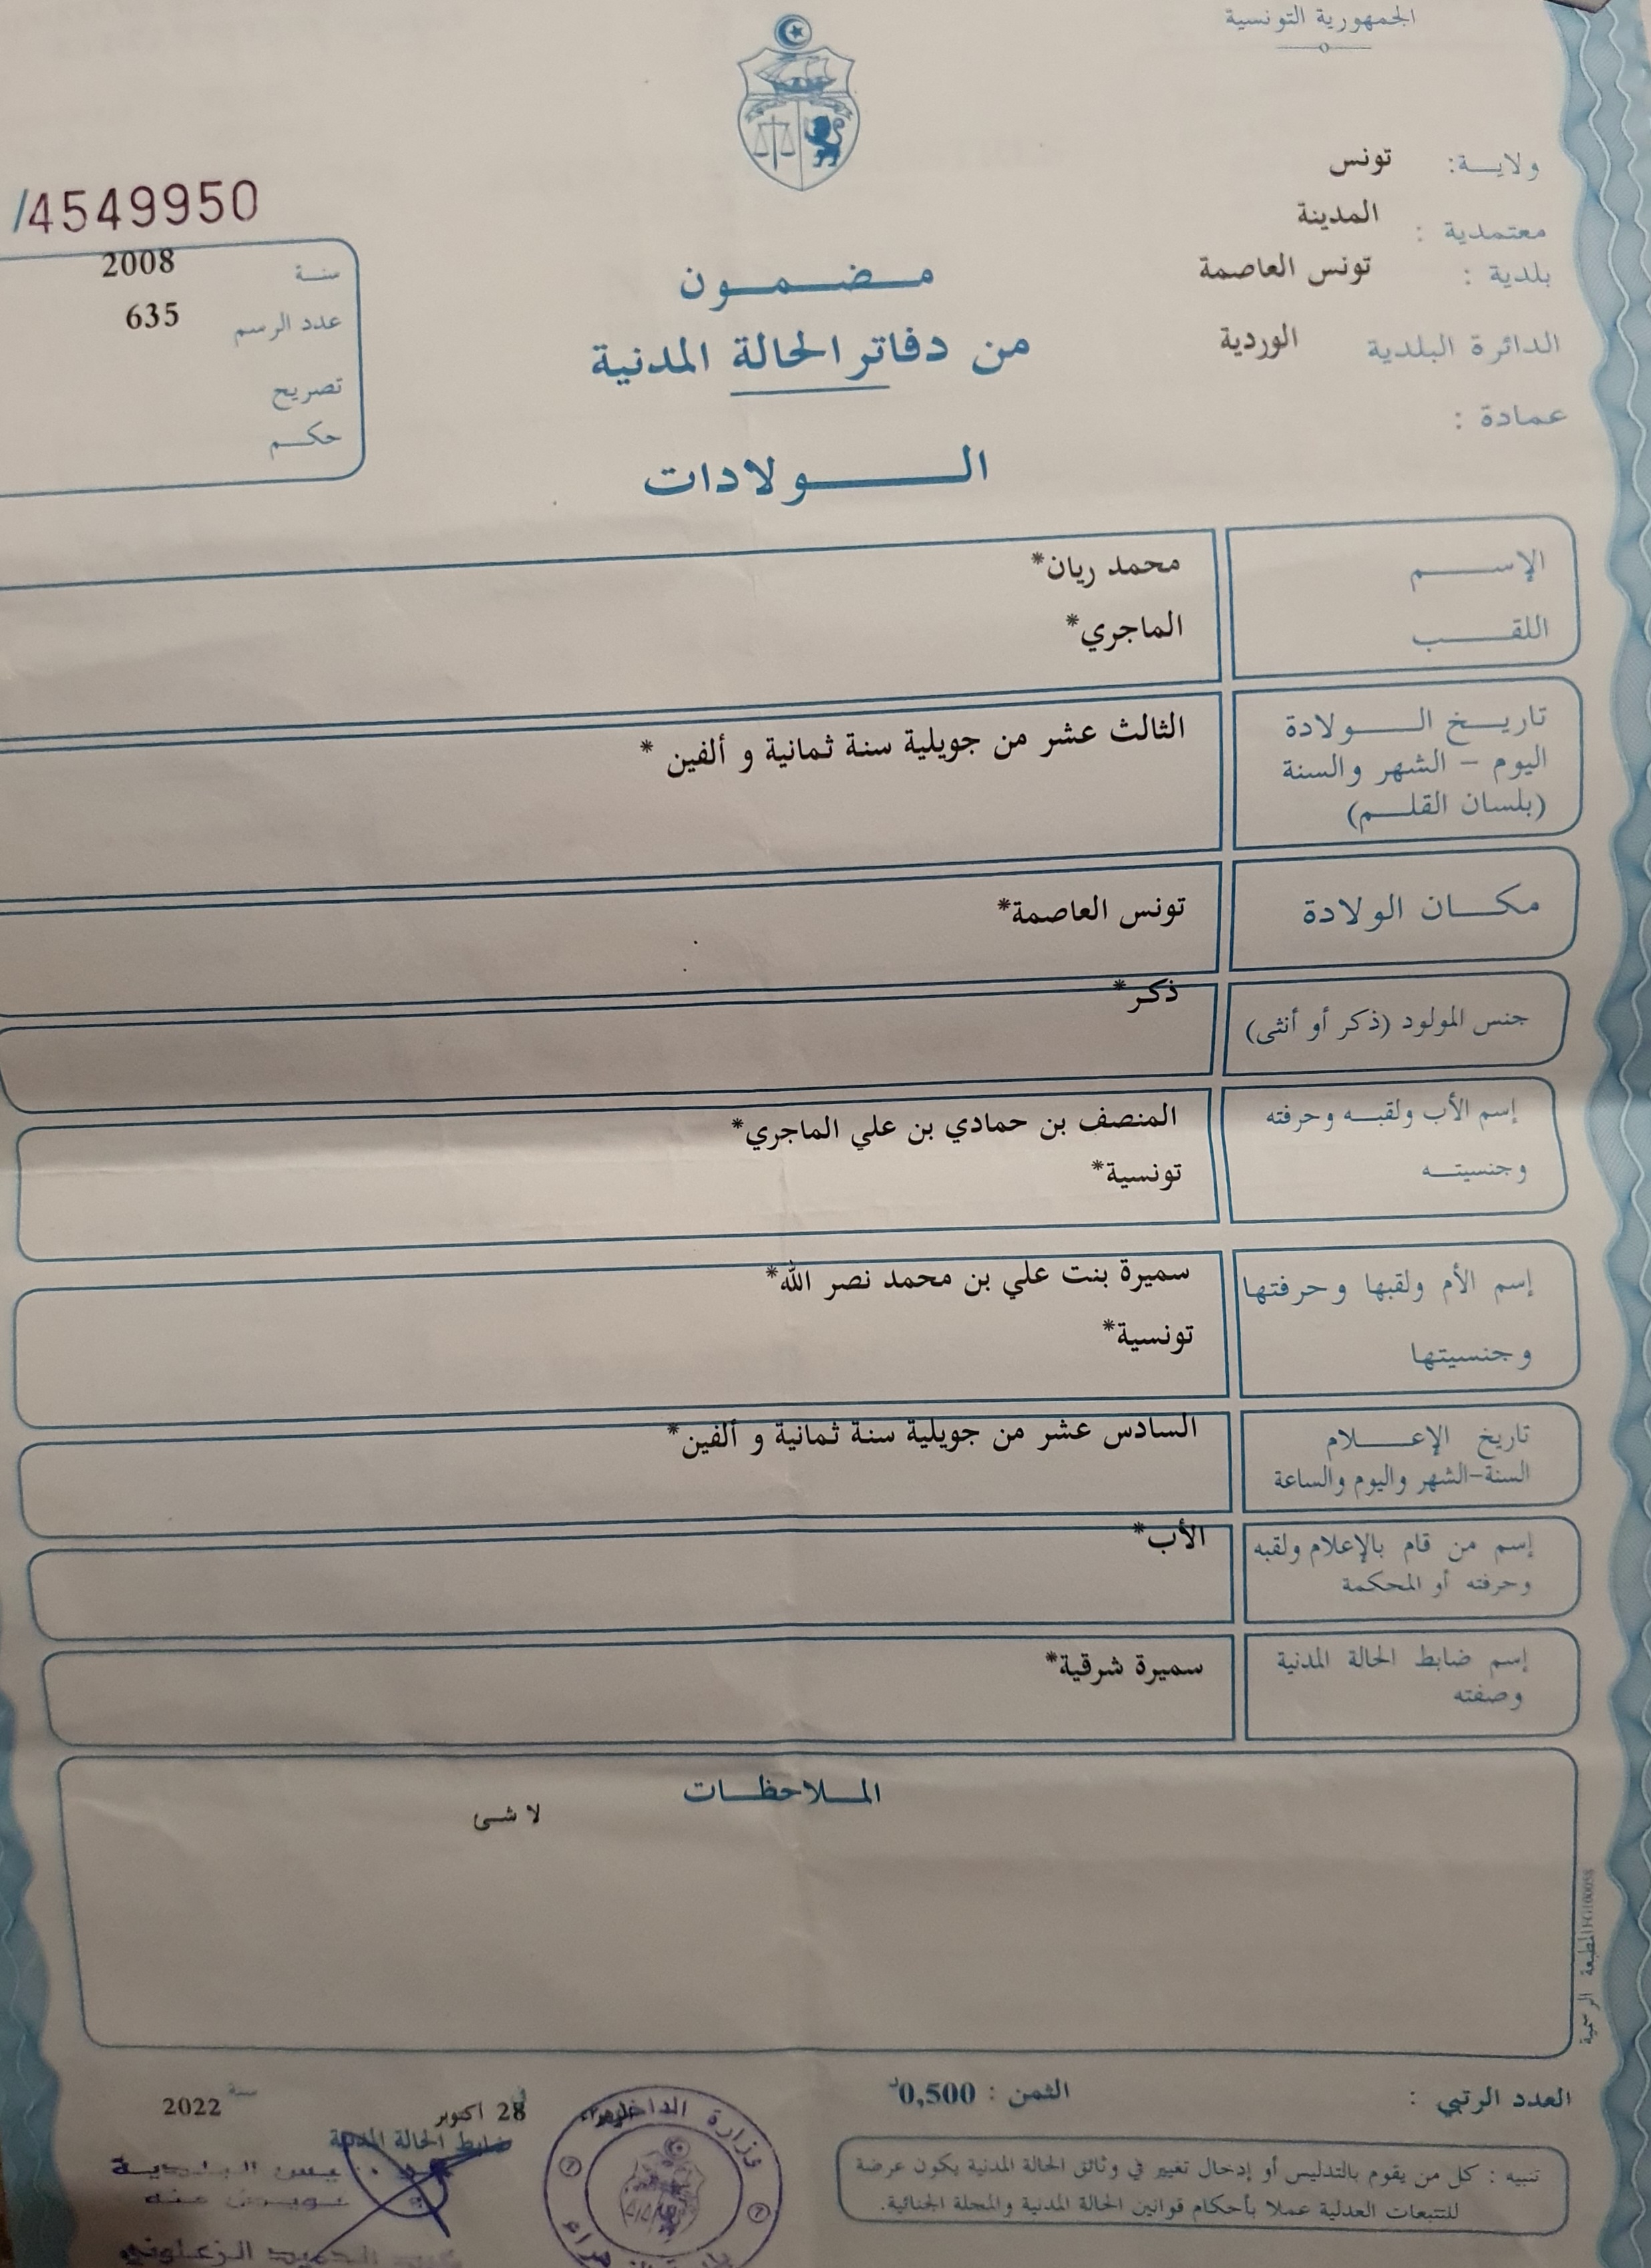 الجمهورية التونسية
ولايـة: تونس
معتمدية : المدينة
بلدية : تونس العاصمة
الدائرة البلدية الوردية
عمادة :
/4549950
سنة 2008
عدد الرسم 635
تصريح
حكم
مضمون
من دفاتر الحالة المدنية
الولادات
الإسم محمد ريان*
اللقب الماجري*
تاريخ الولادة الثالث عشر من جويلية سنة ثمانية و ألفين *
اليوم - الشهر والسنة
(بلسان القلم)
مكان الولادة تونس العاصمة*
جنس المولود (ذكر أو أنثى) ذكر*
إسم الأب ولقبه وحرفته المنصف بن حمادي بن علي الماجري*
وجنسيته تونسية*
إسم الأم ولقبها وحرفتها سميرة بنت علي بن محمد نصر الله*
وجنسيتها تونسية*
تاريخ الإعلام السادس عشر من جويلية سنة ثمانية و ألفين*
السنة-الشهر واليوم والساعة
إسم من قام بالإعلام ولقبه الأب*
وحرفته أو المحكمة
إسم ضابط الحالة المدنية سميرة شرقية*
وصفته
الملاحظات
لا شى
المطبعة الرسمية
العدد الرتبي :
الثمن : 0,500د
في 28 اكتوبر سنة 2022
ضابط الحالة المدنية
تنبيه : كل من يقوم بالتدليس أو إدخال تغيير في وثائق الحالة المدنية يكون عرضة
للتتبعات العدلية عملا بأحكام قوانين الحالة المدنية والمجلة الجنائية.
وزارة الداخلية